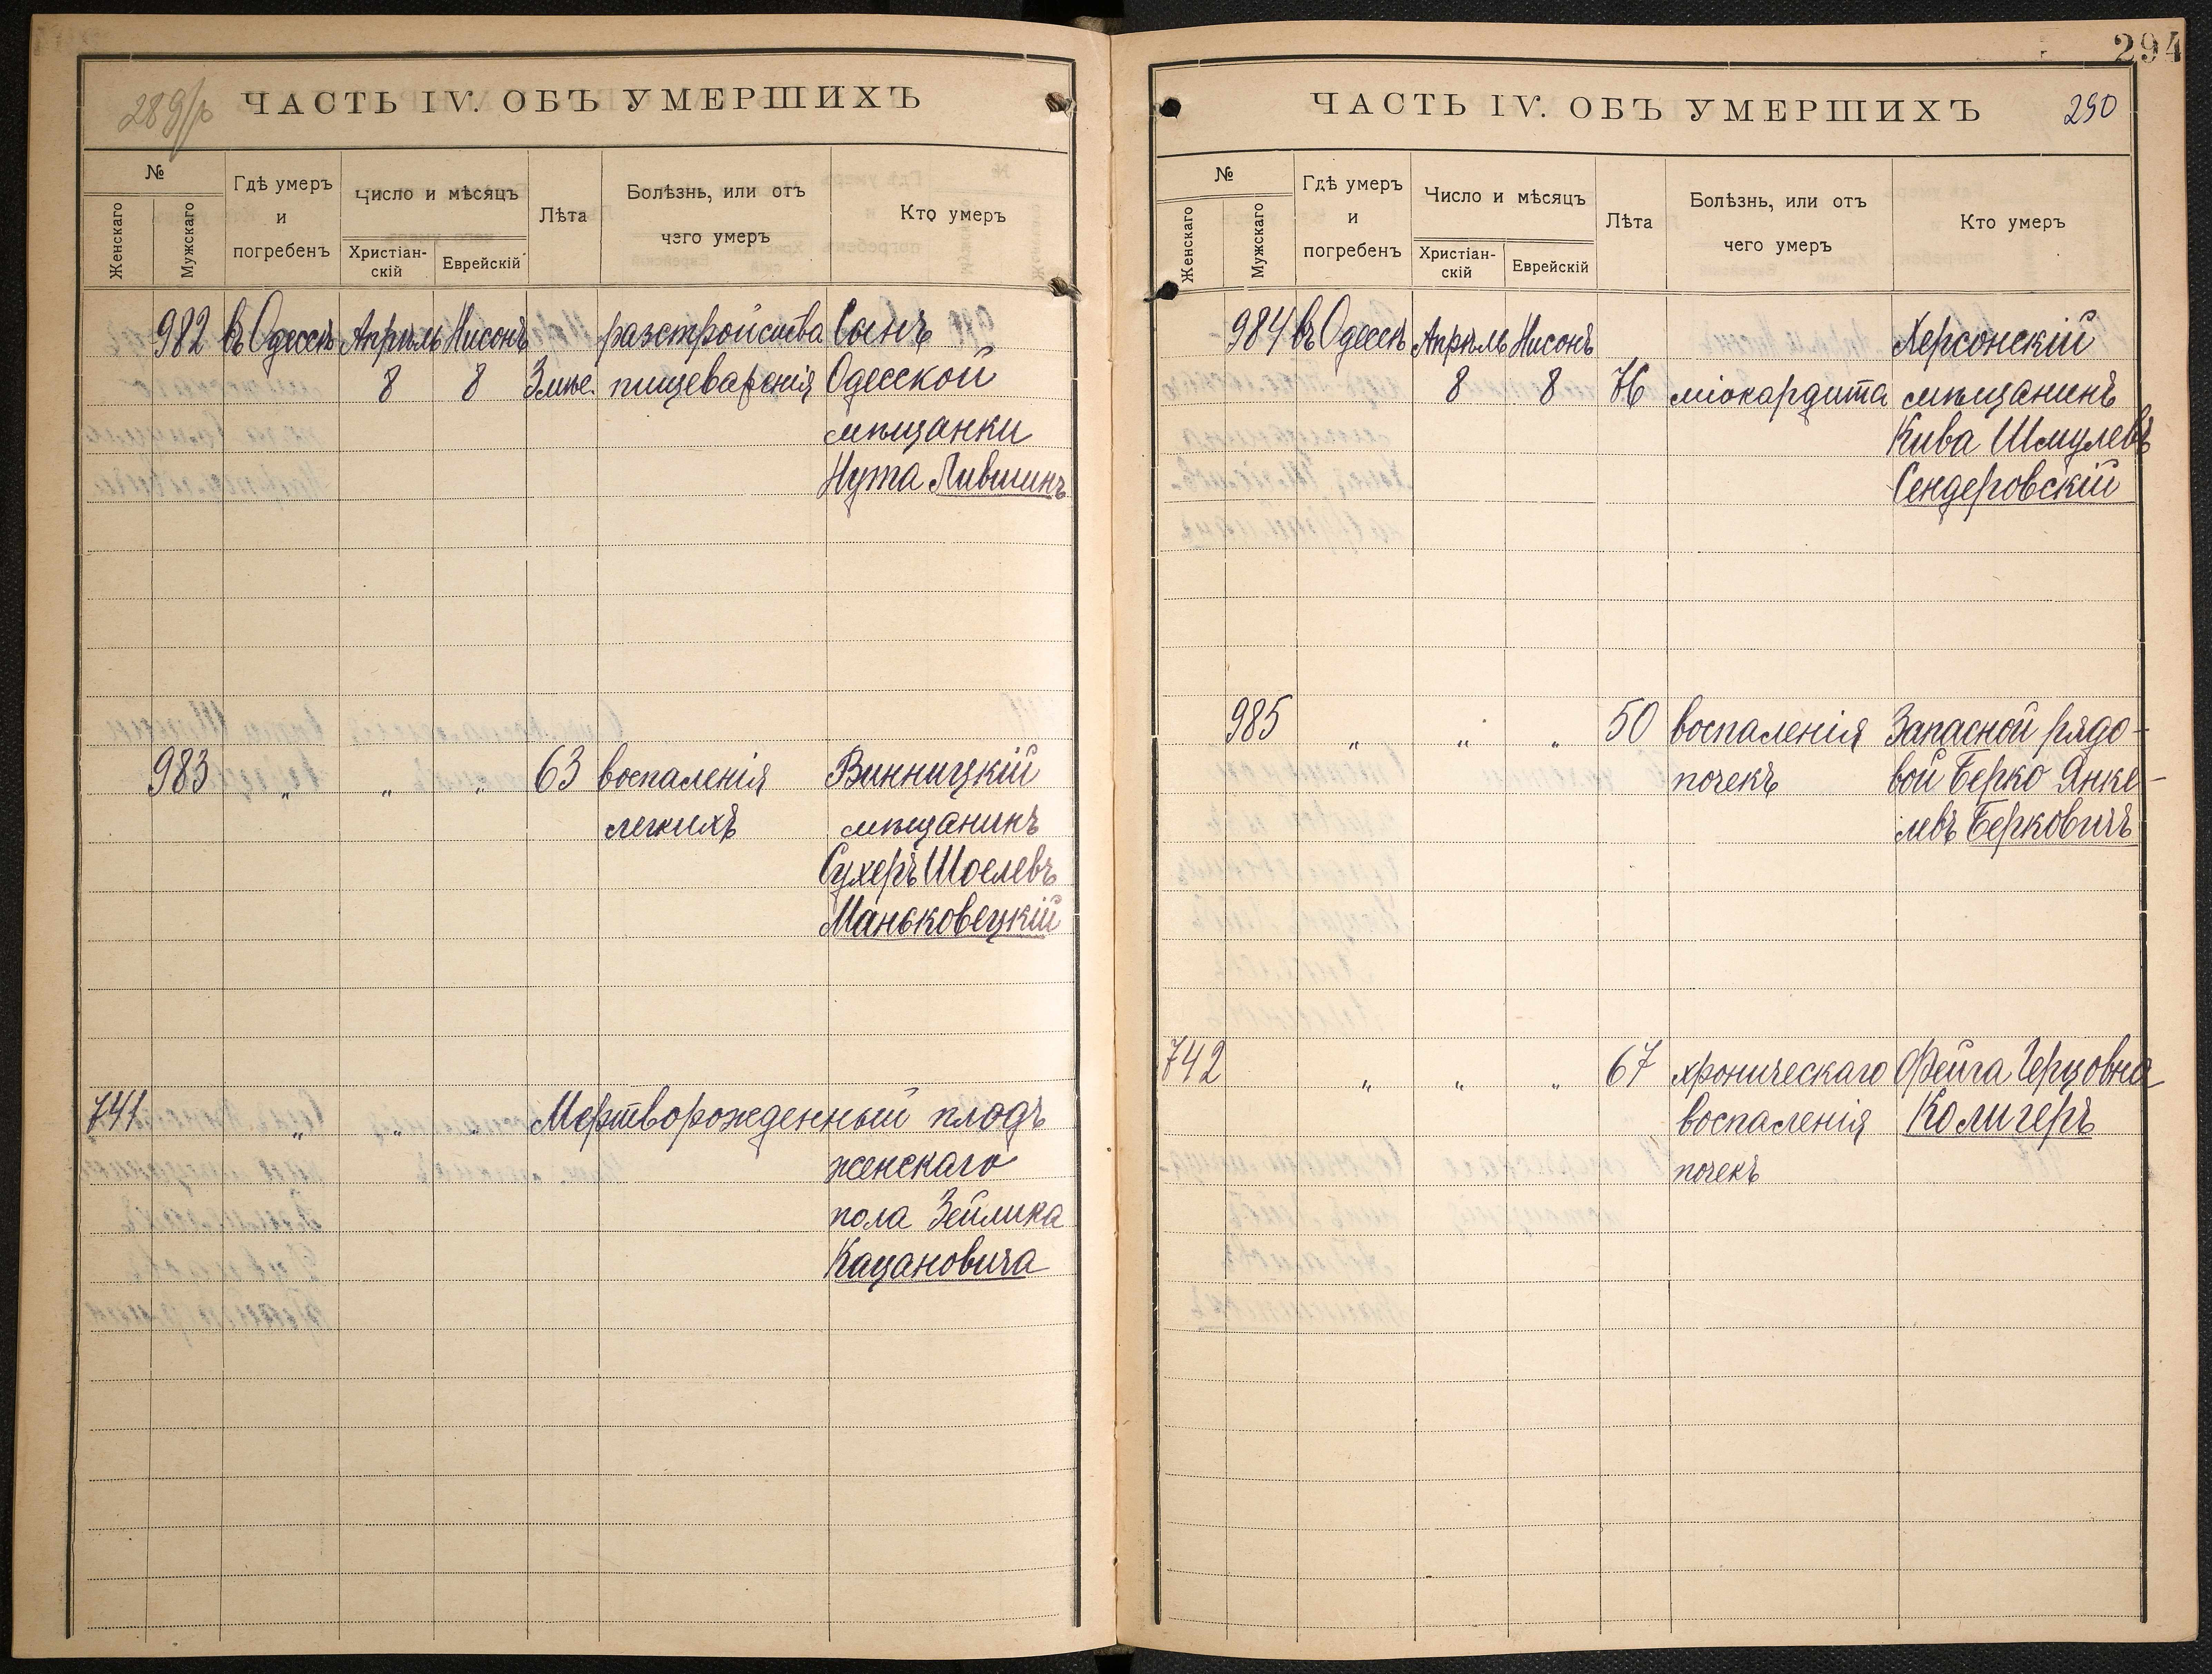 294
289/р ЧАСТЬ IV. ОБЪ УМЕРШИХЪ
№
Женскаго
Мужскаго
Гдѣ умеръ
и
погребенъ
Число и мѣсяцъ
Христіан-
скій
Еврейскій
Лѣта
Болѣзнь, или отъ
чего умеръ
Кто умеръ
982 въ Одессѣ Апрѣль Нисонъ разстройства Сынъ
8 8 3 мѣс. пищеваренія Одесской
мѣщанки
Нута Лившинъ
983 „ „ „ 63 воспаленія Винницкій
легкихъ мѣщанинъ
Сухеръ Шоелевъ
Маньковецкій
741 „ „ „ Мертворожденный плодъ
женскаго
пола Зейлика
Кацановича
ЧАСТЬ IV. ОБЪ УМЕРШИХЪ 290
№
Женскаго
Мужскаго
Гдѣ умеръ
и
погребенъ
Число и мѣсяцъ
Христіан-
скій
Еврейскій
Лѣта
Болѣзнь, или отъ
чего умеръ
Кто умеръ
984 въ Одессѣ Апрѣль Нисонъ Херсонскій
8 8 76 міокардита мѣщанинъ
Кива Шмулевъ
Сендеровскій
985 „ „ „ 50 воспаленія Запасной рядо-
почекъ вой Берко Янке-
левъ Берковичъ
742 „ „ „ 67 хроническаго Фейга Герцовна
воспаленія Колигеръ
почекъ